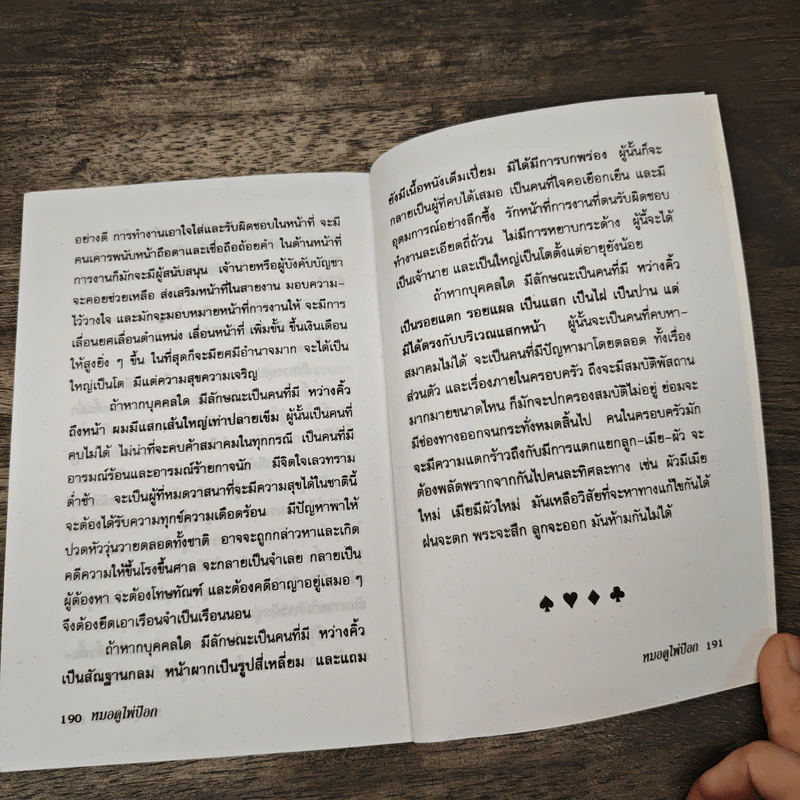 อย่างดี การทำงานเอาใจใส่และรับผิดชอบในหน้าที่ จะมี
คนเคารพนับหน้าถือตาและเชื่อถือถ้อยคำ ในด้านหน้าที่
การงานก็มักจะมีผู้สนับสนุน เจ้านายหรือผู้บังคับบัญชา
จะคอยช่วยเหลือ ส่งเสริมหน้าที่ในสายงาน มอบความ-
ไว้วางใจ และมักจะมอบหมายหน้าที่การงานให้ จะมีการ
เลื่อนยศเลื่อนตำแหน่ง เลื่อนหน้าที่ เพิ่มขั้น ขึ้นเงินเดือน
ให้สูงยิ่ง ๆ ขึ้น ในที่สุดก็จะมียศมีอำนาจมาก จะได้เป็น
ใหญ่เป็นโต มีแต่ความสุขความเจริญ
ถ้าหากบุคคลใด มีลักษณะเป็นคนที่มี หว่างคิ้ว
ถึงหน้า ผมมีแสกเส้นใหญ่เท่าปลายเข็ม ผู้นั้นเป็นคนที่
คบไม่ได้ ไม่น่าที่จะคบค้าสมาคมในทุกกรณี เป็นคนที่มี
อารมณ์ร้อนและอารมณ์ร้ายกาจนัก มีจิตใจเลวทราม
ต่ำช้า จะเป็นผู้ที่หมดวาสนาที่จะมีความสุขได้ในชาตินี้
จะต้องได้รับความทุกข์ความเดือดร้อน มีปัญหาพาให้
ปวดหัววุ่นวายตลอดทั้งชาติ อาจจะถูกกล่าวหาและเกิด
คดีความให้ขึ้นโรงขึ้นศาล จะกลายเป็นจำเลย กลายเป็น
ผู้ต้องหา จะต้องโทษทัณฑ์ และต้องคดีอาญาอยู่เสมอ ๆ
จึงต้องยึดเอาเรือนจำเป็นเรือนนอน
ถ้าหากบุคคลใด มีลักษณะเป็นคนที่มี หว่างคิ้ว
เป็นสัณฐานกลม หน้าผากเป็นรูปสี่เหลี่ยม และแถม
190 หมอดูไพ่ป๊อก
ยังมีเนื้อหนังเต็มเปี่ยม มิได้มีการบกพร่อง ผู้นั้นก็จะ
กลายเป็นผู้ที่คบได้เสมอ เป็นคนที่ใจคอเยือกเย็น และมี
อุดมการณ์อย่างลึกซึ้ง รักหน้าที่การงานที่ตนรับผิดชอบ
ทำงานละเอียดถี่ถ้วน ไม่มีการหยาบกระด้าง ผู้นี้จะได้
เป็นเจ้านาย และเป็นใหญ่เป็นโตตั้งแต่อายุยังน้อย
ถ้าหากบุคคลใด มีลักษณะเป็นคนที่มี หว่างคิ้ว
เป็นรอยแตก รอยแผล เป็นแสก เป็นไฝ เป็นปาน แต่
มิได้ตรงกับบริเวณแสกหน้า ผู้นั้นจะเป็นคนที่คบหา-
สมาคมไม่ได้ จะเป็นคนที่มีปัญหามาโดยตลอด ทั้งเรื่อง
ส่วนตัว และเรื่องภายในครอบครัว ถึงจะมีสมบัติพัสถาน
มากมายขนาดไหน ก็มักจะปกครองสมบัติไม่อยู่ ย่อมจะ
มีช่องทางออกจนกระทั่งหมดสิ้นไป คนในครอบครัวมัก
จะมีความแตกร้าวถึงกับมีการแตกแยกลูก-เมีย-ผัว จะ
ต้องพลัดพรากจากกันไปคนละทิศละทาง เช่น ผัวมีเมีย
ใหม่ เมียมีผัวใหม่ มันเหลือวิสัยที่จะหาทางแก้ไขกันได้
ฝนจะตก พระจะสึก ลูกจะออก มันห้ามกันไม่ได้
หมอดูไพ่ป๊อก 191